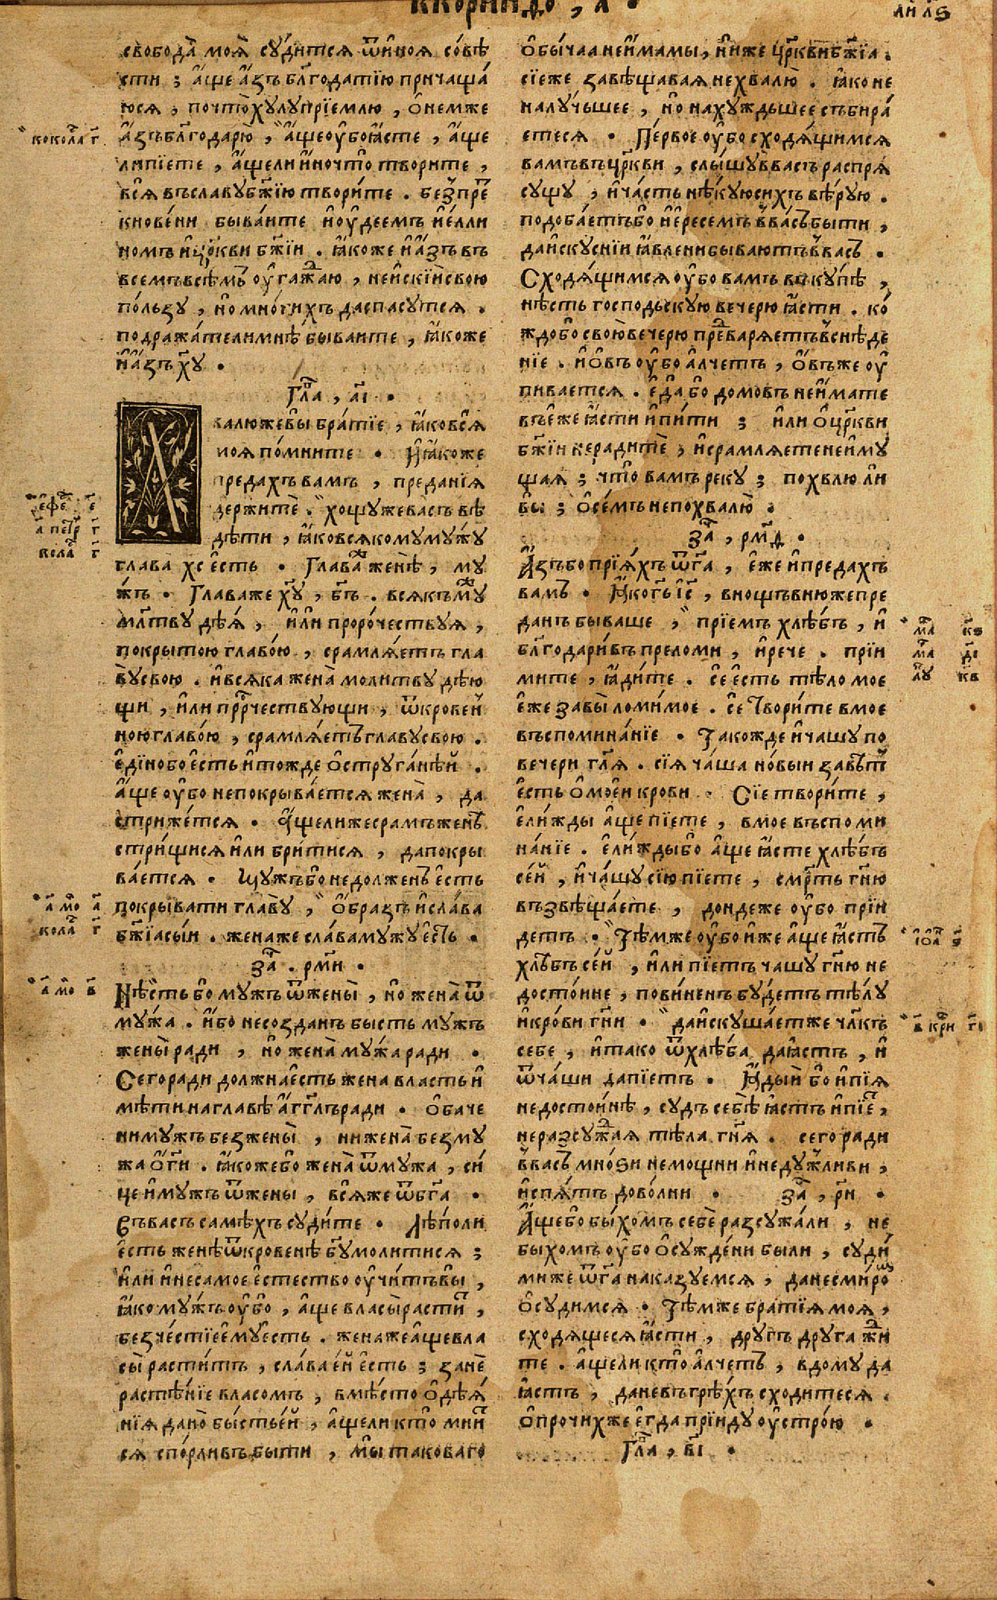 ккоринѳо , а҃ .
ли л҃ѕ
свобода̀ моѧ̀ сꙋ́дитсѧ ѿ и҆ноѧ со́вѣ
сти ; а҆́ще а҆́зъ бл҃года́тїю причаща́
юсѧ , почто̀ хꙋлꙋ̀ прїе́млю , ѡ҆ не́мже
а҆́зъ бл҃годарю̀ , а҆́ще ᲂу҆́бо ꙗ҆́сте , а҆́ще
ли пїе́те , а҆́ще ли и҆́но что̀ твори́те ,
всѧ̀ въ сла́вꙋ бж҃їю твори́те . без̾ пре
кнове́ни быва́ите и҆ ᲂу҆де́емъ и҆ е҆́лли
номъ и҆ цр҃кви бж҃їи . ꙗ҆́коже и҆ а҆́зъ въ
все́мъ всѣ̑мъ ᲂу҆гажа́ю , не и҆скїѝ свою̀
по́льзꙋ , но мно́гихъ да спасꙋ́тсѧ .
подража́тели мнѣ̀ быва́ите , ꙗ҆́коже
и҆ а҆́зъ хꙋ҃ .
гл҃а , а҃і .
хвалю́ же вы̀ бра́тїе , ꙗ҆́ко всѧ̀
моѧ̀ по́мните . и҆ ꙗ҆́коже
преда́хъ ва́мъ , преда́нїѧ
держитѐ . хощꙋ́ же ва́съ вѣ́
дѣти , ꙗ҆́ко всѧ́комꙋ мꙋ́жꙋ
глава̀ хс҃ е҆́сть . Глава́ же женѣ̀ , мꙋ́
жъ . Глава́ же хꙋ҃ , бг҃ъ . всѧ́къ мꙋ́ж
мл҃твꙋ дѣ́ѧ , и҆лѝ проро́чествꙋѧ ,
покры́тою главо́ю , срамлѧ́етъ гла
вꙋ̀ свою̀ . и҆ всѧ́ка жена̀ моли́твꙋ дѣ́ю
щи , и҆лѝ прⷪ҇рчествꙋющи , ѿкрове́н
ною главо́ю , срамлѧ́етъ главꙋ̀ свою̀ .
е҆ди́но бо е҆́сть и҆ то́жде ѡ҆стрꙋга́нѣй .
а҆́ще ᲂу҆́бо не покрыва́етсѧ жена̀ , да
стриже́тсѧ . а҆́ще ли же сра́мъ женѣ̀
стри́щисѧ и҆лѝ бри́тисѧ , да покры
ва́етсѧ . Мꙋ́жъ бо недо́лженъ е҆́сть
покрыва́ти главꙋ̀ , ѻ҆́бразъ и҆ сла́ва
бж҃їа сы́и . жена́ же сла́ва мꙋ́жꙋ е҆́сть .
за҃ . рм҃и .
Нѣ́сть бо мꙋ́жъ ѿ жены̀ , но жена̀ ѿ
мꙋ́жа . и҆́бо не со́зданъ бы́сть мꙋ́жъ
жены̀ ра́ди , но жена̀ мꙋ́жа ра́ди .
Сего̀ ра́ди должна̀ е҆́сть жена̀ вла́сть и҆
мѣ́ти на главѣ̀ а҆́гг҃лъ ра́ди . ѻ҆ба́че
ни мꙋ́жъ без̾ жены̀ , ни жена̀ без̾ мꙋ́
жа ѡ҆ гн҃и . ꙗ҆́коже бо жена̀ ѿ мꙋ́жа , си́
це и҆ мꙋ́жъ ѿ жены̀ , всѧ́ же ѿ бг҃а .
Въ ва́съ самѣ́хъ сꙋди́те . лѣ́по ли
е҆́сть женѣ̀ ѿкрове́нѣ бг҃ꙋ моли́тисѧ ;
и҆лѝ и҆ не са́мое е҆стество̀ ᲂу҆чи́тъ вы̀ ,
ꙗ҆́ко мꙋ́жъ ᲂу҆́бо , а҆́ще власы̀ расти́т ,
безче́стїе е҆мꙋ̀ е҆́сть . жена́ же а҆́ще вла
сы̀ расти́тъ , сла́ва е҆́й е҆́сть ; занѐ
растѣ́нїе власо́мъ , вмѣ́сто ѻ҆дѣѧ́
нїѧ дано̀ бы́сть е҆́й , а҆́ще ли кто̀ мни́т
сѧ спо́рливъ бы́ти , мы̀ такова́го
ѻ҆бы́чаа не и҆́мамы , ниже цр҃кви бж҃їа .
сїе́ же завѣщава́ѧ не хвалю̀ . ꙗ҆́ко не
на лꙋ́чьшее , но на хꙋ́ждьшее събира́
етесѧ . Пе́рвое ᲂу҆́бо сходѧ́щимсѧ
ва́мъ въ цр҃кви , слы́шꙋ в ва́съ ра́спрѧ
сꙋ́щꙋ , и҆ ча́сть нѣ́кꙋю си́хъ вѣ́рꙋю .
подоба́етъ бо и҆ е҆́ресемъ в ва́съ бы́ти ,
да и҆скꙋ́снїи ꙗ҆вле́ни быва́ютъ в ва́съ .
Сходѧ́щимсѧ ᲂу҆́бо ва́мъ въкꙋ́пѣ ,
нѣ́сть господьскꙋю ве́черю ꙗ҆́сти . ко́
ждо бо свою̀ ве́черю преⷣварѧ́етъ в снѣде́
нїе . и҆ ѻ҆́въ ᲂу҆́бо а҆́лчетъ , ѻ҆́въ же ᲂу҆
пива́етсѧ . е҆да̀ бо домо́въ не и҆́мате
въ е҆́же ꙗ҆́сти и҆ пи́ти ; и҆лѝ ѡ҆ цр҃кви
бж҃їи нерадитѐ , и҆ срамлѧ́ете не и҆мꙋ́
щаѧ ; что̀ ва́мъ рекꙋ̀ ; похвалю̀ ли
вы̀ ; ѡ҆ се́мъ не похвалю̀ .
за҃ , рм҃ѳ .
А҆́зъ бо прїѧ́хъ ѿ гд҃а , е҆́же и҆ преда́хъ
ва́мъ . ꙗ҆́ко гь҃ і҆с҃ , в но́щъ в ню́же пре
да́нъ быва́ше , прїе́мъ хлѣ́бъ , и҆
бл҃годари́въ преломѝ , и҆ речѐ . прїи
ми́те , ꙗ҆ди́те . сѐ е҆́сть тѣ́ло моѐ
е҆́же за вы̀ ломи́мое . сѐ твори́те в моѐ
въспомина́нїе . Та́кожде и҆ ча́шꙋ по
ве́чери гл҃ѧ . сїѧ̀ ча́ша но́выи завѣ́т
е҆́сть ѡ҆ мое́и кро́ви . Сїѐ твори́те ,
е҆ли́жды а҆́ще пїе́те , в моѐ въспоми
на́нїе . е҆ли́жды бо а҆́ще ꙗ҆́сте хлѣ́бъ
се́й , и҆ ча́шꙋ сїю̀ пїе́те , сме́рть гн҃ю
възвѣща́ете , до́ндеже ᲂу҆́бо прїи́
детъ . Тѣ́мже ᲂу҆́бо и҆́же а҆́ще ꙗ҆́стъ
хлѣ́бъ се́й , и҆лѝ пїе́тъ ча́шꙋ гн҃ю не
досто́ине , пови́ненъ бꙋ́детъ тѣ́лꙋ
и҆ кро́ви гн҃и . да и҆скꙋша́ет же чл҃къ
себѐ , и҆ та́ко ѿ хлѣ́ба да ꙗ҆́стъ , и҆
ѿ ча́ши да пїе́тъ . ꙗ҆ды́й бо и҆ пїѧ̀
недосто́инѣ , сꙋ́дъ себѣ̀ ꙗ҆́стъ и҆ пїе́т ,
не разсꙋжа́ѧ тѣ́ла гн҃ѧ . сего̀ ра́ди
в ва́съ мно́ѕи не́мощни и҆ недꙋ́жливи ,
и҆ спѧ́тъ дово́лни . за҃ , рн҃ .
А҆́ще бо бы́хомъ себѐ разсꙋжа́ли , не
бы́хомъ ᲂу҆́бо ѡ҆сꙋжде́ни бы́ли , сꙋди́
ми же ѿ гд҃а наказꙋ́емсѧ , да не с миро́м
ѡ҆сꙋ́димсѧ . Тѣ́мже бра́тїѧ моѧ̀ ,
сходѧ́щесѧ ꙗ҆́сти , дрꙋ́гъ дрꙋ́га жди́
те . а҆́ще ли кто̀ а҆́лчетъ , в домꙋ̀ да
ꙗ҆́стъ , да не въ грѣ́хъ схо́дитесѧ .
ѡ҆ про́чихже е҆гда̀ прїидꙋ̀ ᲂу҆стро́ю .
гл҃а , в҃і .
кокола г҃
ефе е҃
а҃ петр г҃
кола г҃
а҃ мо а҃
кола г҃
а҃ мо в҃
ма к҃ѕ
ма д҃і
лꙋ к҃в
іѡа ѕ҃
в҃ кри г҃і